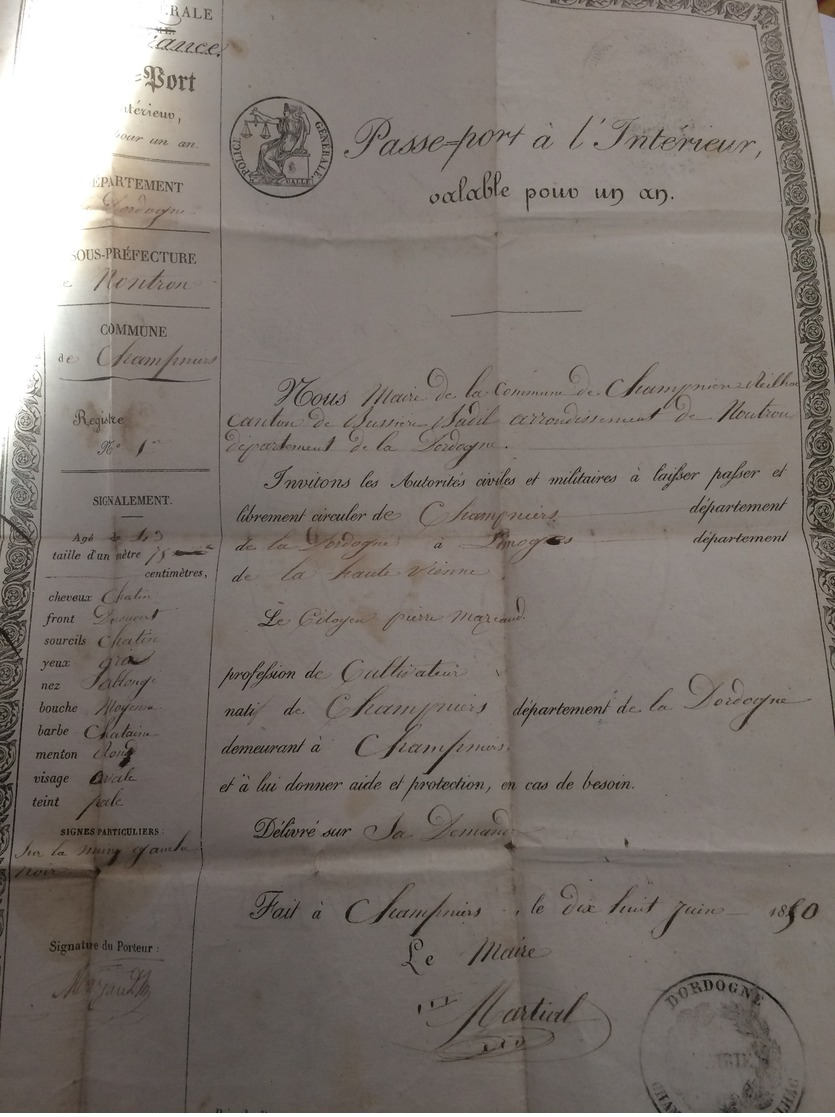 ÉRALE
iance,
-Port
ntérieur,
pour un an.
ÉPARTEMENT
Dordogne
SOUS-PRÉFECTURE
Nontron
COMMUNE
de Champniers
Registre
N° 1
SIGNALEMENT.
Agé de
taille d'un mètre 75
centimètres,
cheveux Chatin
front
sourcils chatin
yeux gris
nez
bouche Moyenne
barbe Chataine
menton Rond
visage Ovale
teint pale
SIGNES PARTICULIERS :
Sur la main gauche
noir
Signature du Porteur :
POLICE GÉNÉRALE
Passe-port à l'Intérieur,
valable pour un an.
Nous Maire de la Commune de Champniers Reilhac
canton de Bussière Badil arrondissement de Nontron
département de la Dordogne.
Invitons les Autorités civiles et militaires à laisser passer et
librement circuler de Champniers département
de la Dordogne à Limoges département
de la haute Vienne
Le Citoyen pierre Mazeaud
profession de Cultivateur
natif de Champniers département de la Dordogne
demeurant à Champniers
et à lui donner aide et protection, en cas de besoin.
Délivré sur Sa Demande
Fait à Champniers, le dix huit juin 1850
Le Maire
Martial
DORDOGNE